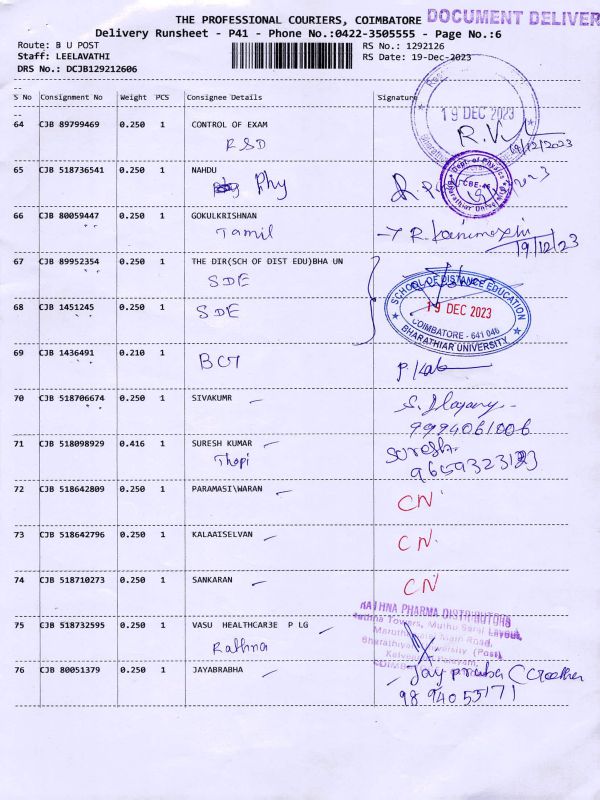 THE PROFESSIONAL COURIERS, COIMBATORE DOCUMENT DELIVER
Delivery Runsheet - P41 - Phone No.:0422-3505555 - Page No.:6
Route: B U POST RS No.: 1292126
Staff: LEELAVATHI RS Date: 19-Dec-2023
DRS No.: DCJB129212606
S No Consignment No Weight PCS Consignee Details Signature
19 DEC 2023
64 CJB 89799469 0.250 1 CONTROL OF EXAM
RSD 19/12/2023
65 CJB 518736541 0.250 1 NAHDU
Phy
Dept. of Physics
CBE-46
Bharathiar University
66 CJB 80059447 0.250 1 GOKULKRISHNAN
Tamil 19/12/23
67 CJB 89952354 0.250 1 THE DIR(SCH OF DIST EDU)BHA UN
SDE
SCHOOL OF DISTANCE EDUCATION
19 DEC 2023
COIMBATORE - 641 046
BHARATHIAR UNIVERSITY
68 CJB 1451245 0.250 1 SDE
69 CJB 1436491 0.210 1
70 CJB 518706674 0.250 1 SIVAKUMR
9994061006
71 CJB 518098929 0.416 1 SURESH KUMAR Suresh
Thopi
72 CJB 518642809 0.250 1 PARAMASI\WARAN CN
73 CJB 518642796 0.250 1 KALAAISELVAN CN
74 CJB 518710273 0.250 1 SANKARAN CN
RATHNA PHARMA DISTRIBUTORS
75 CJB 518732595 0.250 1 VASU HEALTHCAR3E P LG
Rathna
76 CJB 80051379 0.250 1 JAYABRABHA
98940 55171